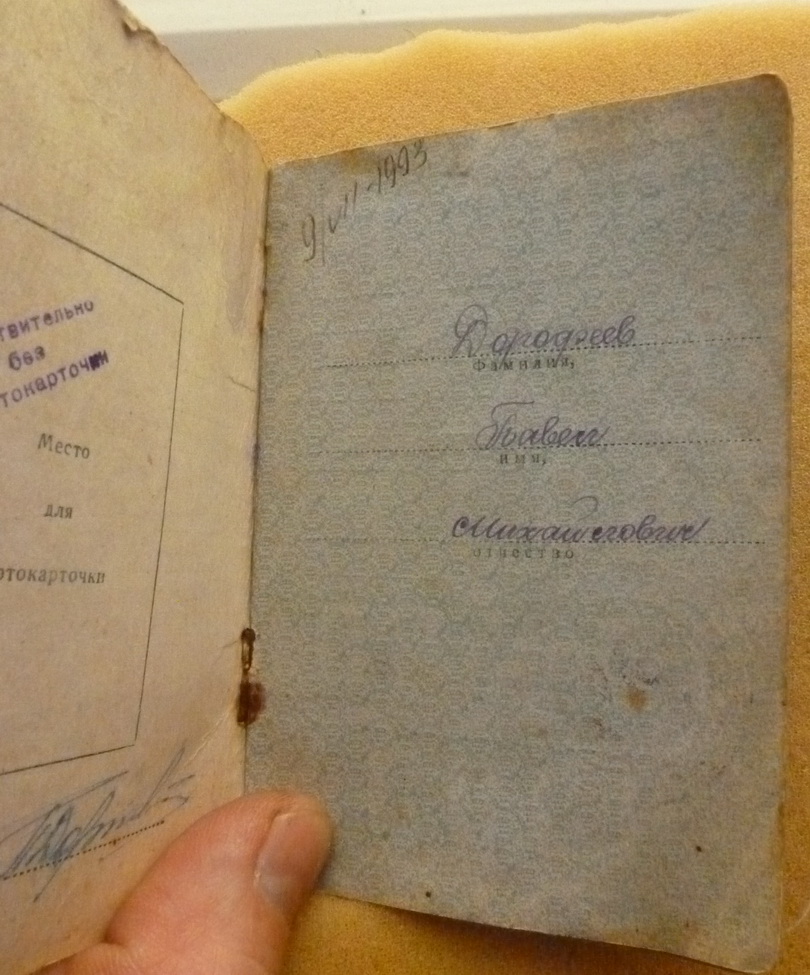 твительно
без
токарточки
Место
для
отокарточки
9/VII-1993
Дорофеев
фамилия,
Павел
имя,
Михайлович
отчество